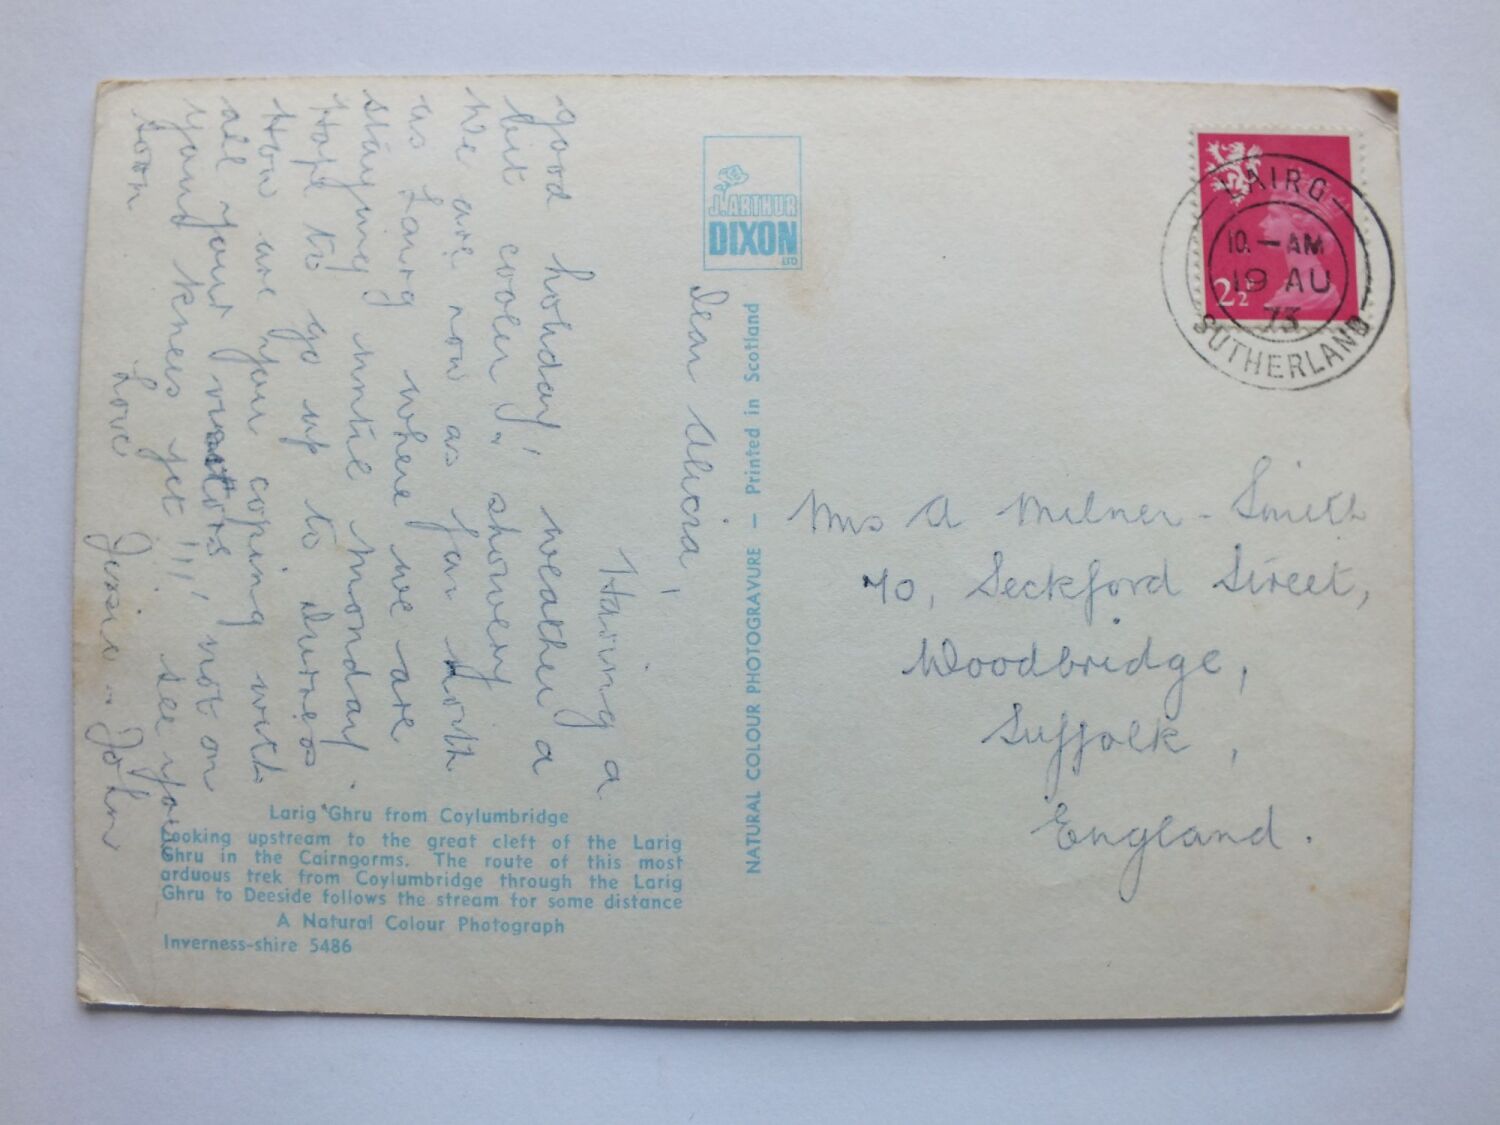 Dear Alicia,
Having a
good holiday, weather a
bit cooler & showery
We are now as far North
as Lairg where we are
staying until Monday.
Hope to go up to Durness
How are you coping with
all your visitors, not on
your knees yet !!! see you
soon
Love
Jessie & John
J. ARTHUR
DIXON
LTD
NATURAL COLOUR PHOTOGRAVURE — Printed in Scotland
LAIRG
10. — AM
19 AU
73
SUTHERLAND
2½
Mrs A Milner-Smith
70, Seckford Street,
Woodbridge,
Suffolk,
England.
Larig Ghru from Coylumbridge
Looking upstream to the great cleft of the Larig
Ghru in the Cairngorms. The route of this most
arduous trek from Coylumbridge through the Larig
Ghru to Deeside follows the stream for some distance
A Natural Colour Photograph
Inverness-shire 5486